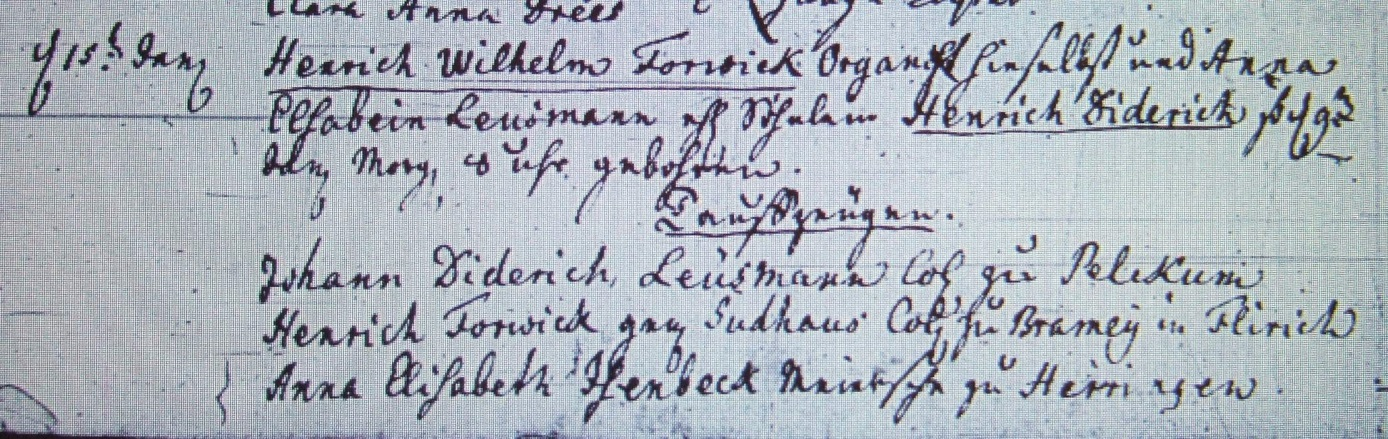 Clara Anna Drees
d 15t Jan Henrich Wilhelm Forwick Organist hieselbst und Anna
Elsabein Leusmann ehl Söhnlein Henrich Diderich
Morg, 8 Uhr gebohren.
Tauffzeugen.
Johann Diderich Leusmann Col zu Pelekum
Henrich Forwick gnt Sudhaus Col, zu Bramey in Flirich
Anna Elisabeth Isenbeck zu Herringen.